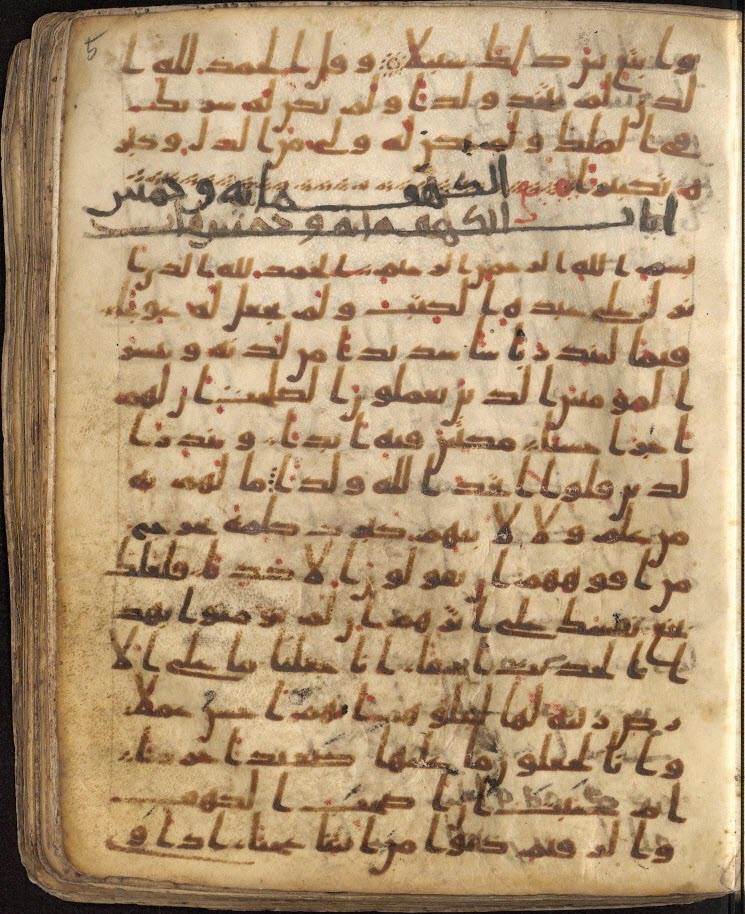 وابتغ بين ذلك سبيلا وقل الحمد لله ا
لذي لم يتخذ ولدا ولم يكن له شريك
في الملك ولم يكن له ولي من الذل وكبر
ه تكبيرا
الكهف مائة وخمس
ايات الكهف مائة وخمس ايات
بسم الله الرحمن الرحيم الحمد لله الذي ا
نزل على عبده الكتب ولم يجعل له عوجا
قيما لينذر باسا شديدا من لدنه ويبشر
المومنين الذين يعملون الصلحت ان لهم
اجرا حسنا مكثين فيه ابدا وينذر ا
لذين قلوا اتخذ الله ولدا ما لهم به
من علم ولا لابائهم كبرت كلمة تخرج
من افوههم ان يقولون الا كذبا فلعلك
بخع نفسك على اثرهم ان لم يومنوا بهذ
ا الحديث اسفا انا جعلنا ما على الا
رض زينة لها لنبلوهم ايهم احسن عملا
وانا لجعلون ما عليها صعيدا جرزا
ام حسبت ان اصحب الكهف
والرقيم كنوا من ايتنا عجبا اذ او